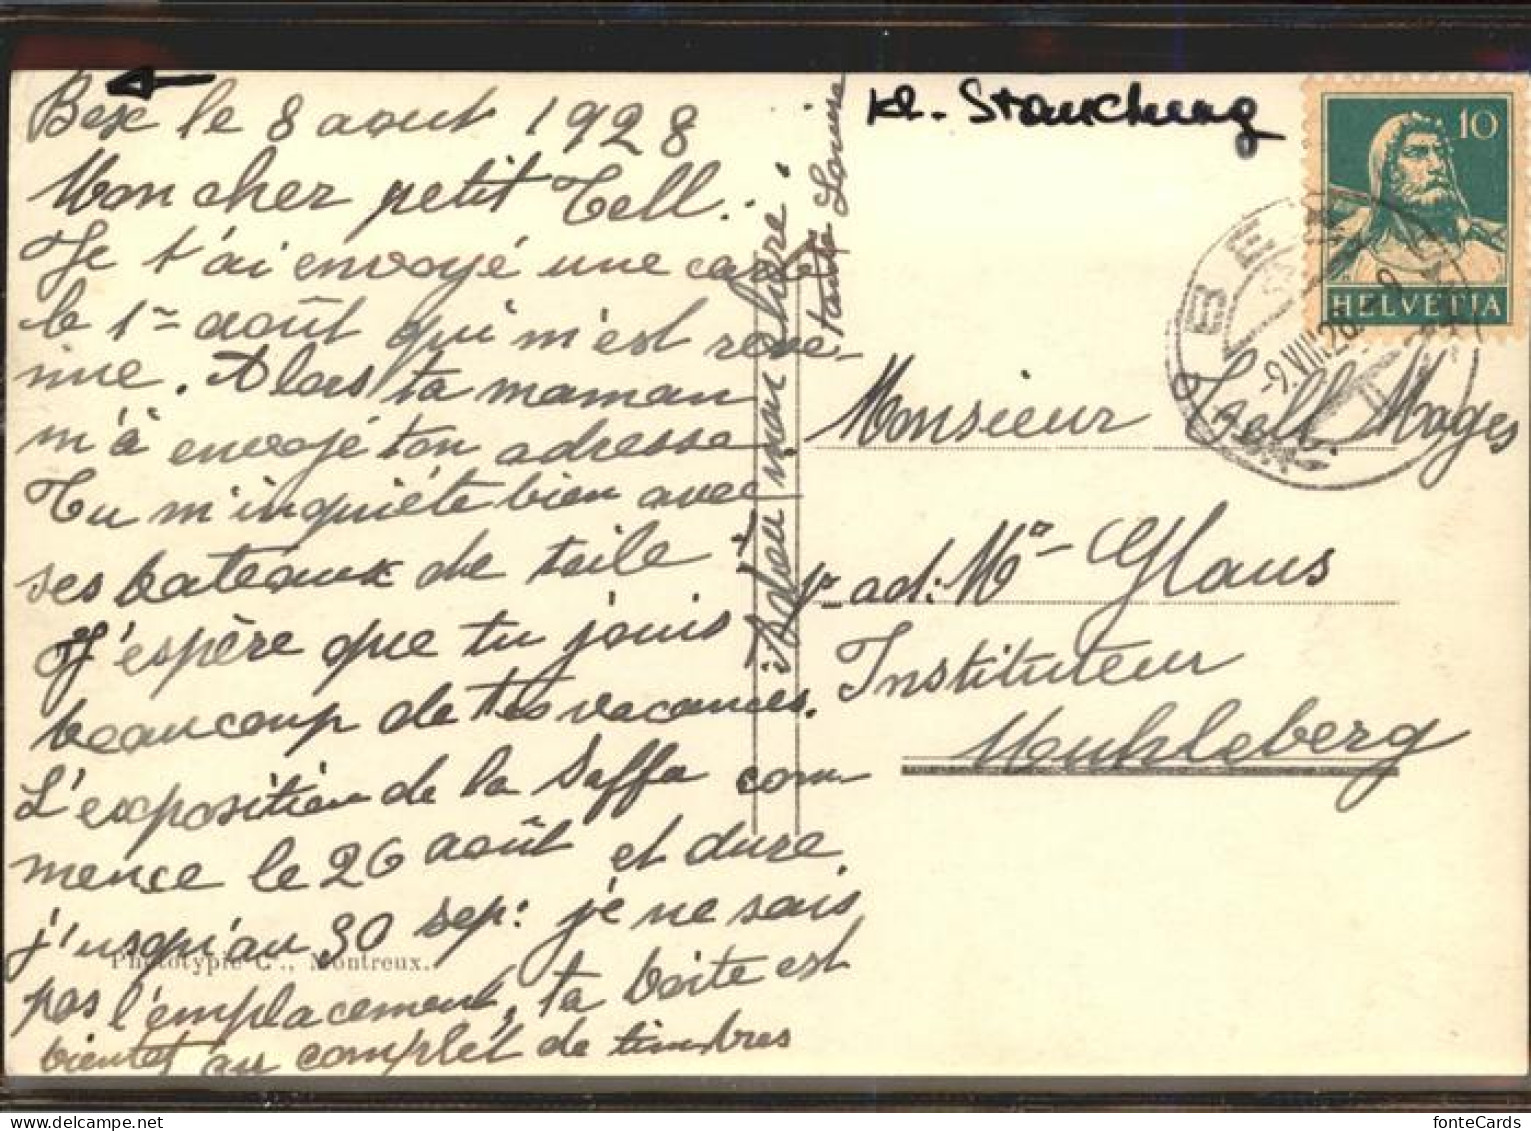 Bex le 8 aout 1928
Mon cher petit Tell.
Je t'ai envoyé une carte
le 1r août qui m'est reve-
nue. Alors ta maman
m'à envoyé ton adresse
Tu m'inquiéte bien avec
ses bateaux de toile
J'espère que tu jouis
beaucoup de tes vacances.
L'exposition de la Saffa com-
mence le 26 août et dure
j'usqu'au 30 sep: je ne sais
pas l'emplacement, ta boite est
bientot au complét de timbres
Adieu mon chéri
tante Louise
Phototypie Co., Montreux.
Kl. Stauchung
10
HELVETIA
BEX
-9.VIII.28.-9
Monsieur Tell. Mages
pr ad: Mr Glaus
Instituteur
Muhleberg
fonteCards